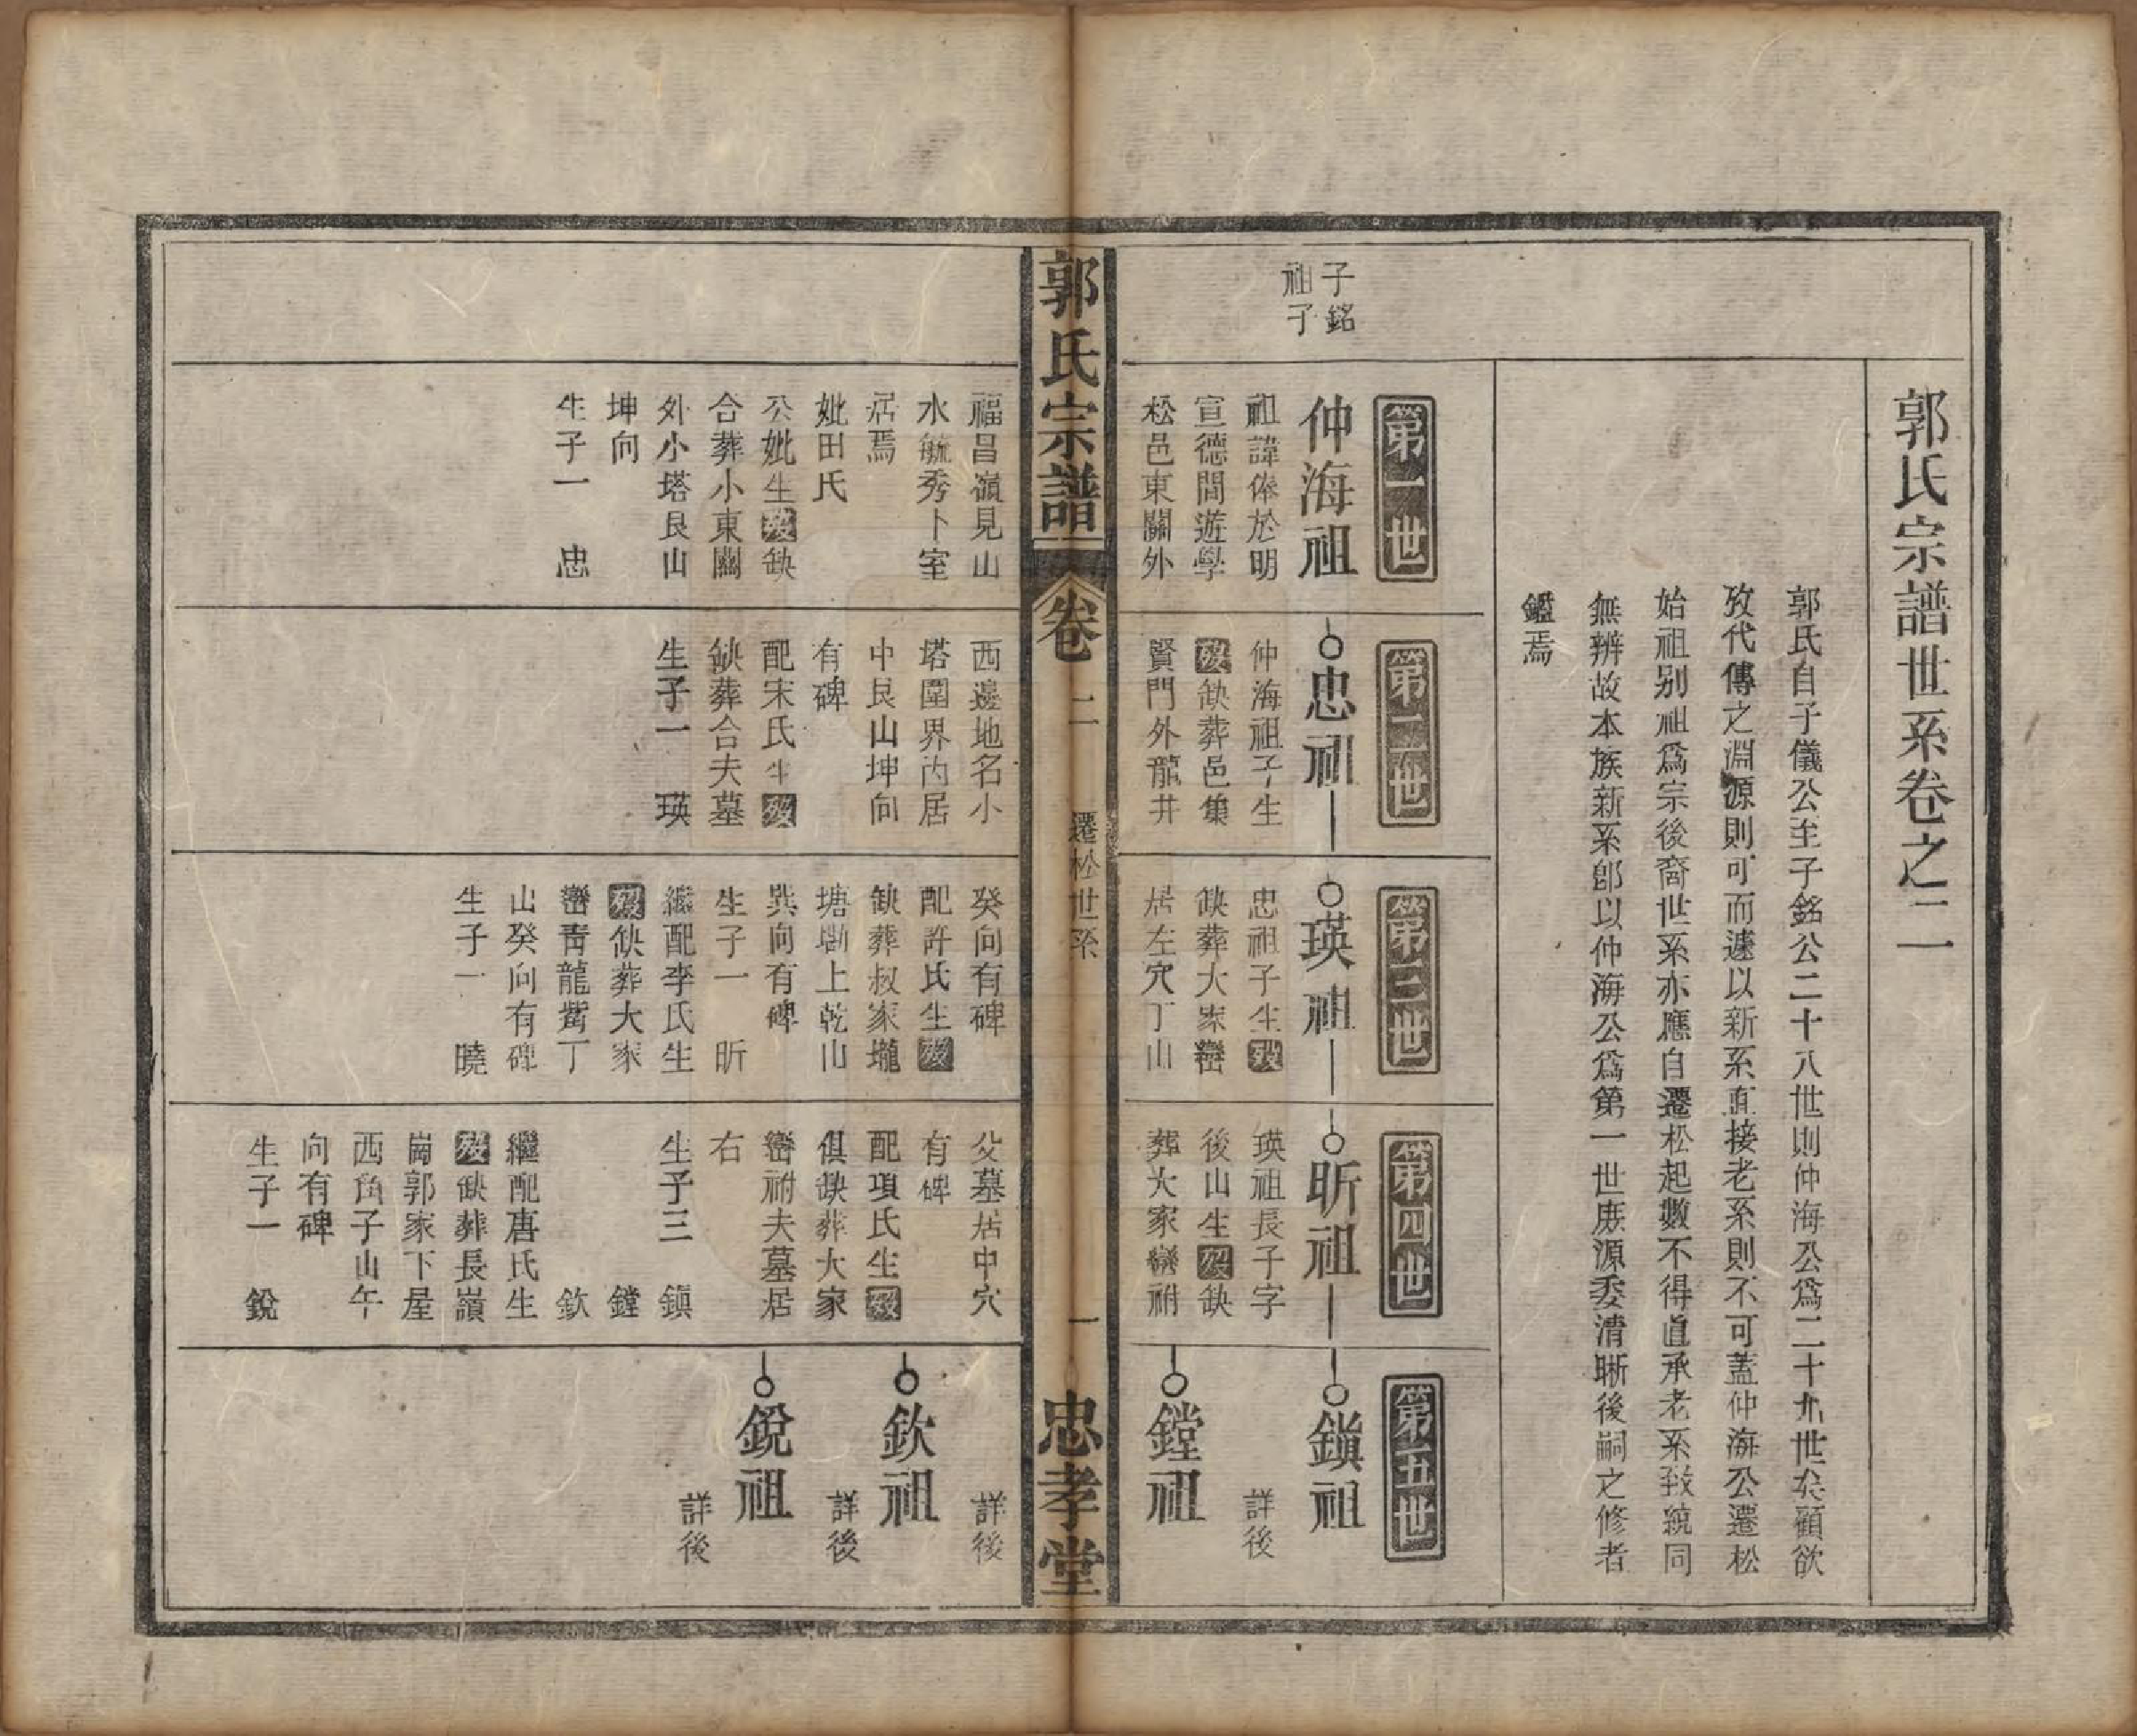 郭氏宗譜世系卷之二
郭氏自子儀公至子銘公二十八世則仲海公爲二十九世矣顧欲
攷代傳之淵源則可而遽以新系直接老系則不可蓋仲海公遷松
始祖别祖爲宗後裔世系亦應自遷松起數不得直承老系致統同
無辨故本族新系卽以仲海公爲第一世庶源委清晰後嗣之修者
鑑焉
子銘
祖子
第一世
仲海祖
祖諱俸於明
宣德間遊學
松邑東關外
福昌嶺見山
水毓秀卜室
居焉
妣田氏
公妣生歿缺
合葬小東關
外小塔艮山
坤向
生子一 忠
第二世
忠祖
仲海祖子生
歿缺葬邑集
賢門外龍井
西邊地名小
塔圍界內居
中艮山坤向
有碑
配宋氏生歿
缺葬合夫墓
生子一 瑛
第三世
瑛祖
忠祖子生歿
缺葬大家巒
居左穴丁山
癸向有碑
配許氏生歿
缺葬叔家壠
塘墈上乾山
巽向有碑
生子一 昕
繼配李氏生
歿缺葬大家
巒青龍觜丁
山癸向有碑
生子一 曉
第四世
昕祖
瑛祖長子字
後山生歿缺
葬大家巒祔
父墓居中穴
有碑
配項氏生歿
俱缺葬大家
巒祔夫墓居
右
生子三 鎭
鏜
欽
繼配唐氏生
歿缺葬長嶺
崗郭家下屋
西角子山午
向有碑
生子一 銳
第五世
鎭祖
詳後
鏜祖
詳後
欽祖
詳後
銳祖
詳後
郭氏宗譜
卷二
遷松世系
一
忠孝堂